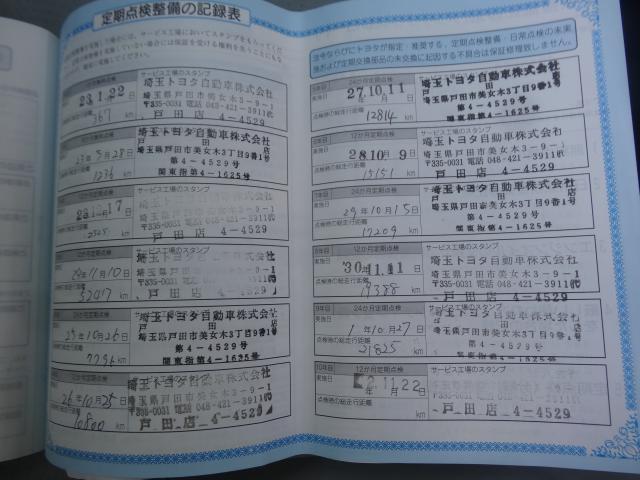 定期点検整備の記録表
サービス工場のスタンプ
23.1.22
367 km
埼玉トヨタ自動車株式会社
埼玉県戸田市美女木3-9-1
〒335-0031 電話 048-421-3911㈹
戸田店 4-4529
サービス工場のスタンプ
23年5月28日
1236 km
埼玉トヨタ自動車株式会社
戸田店
埼玉県戸田市美女木3丁目9番1号
第4-4529号
関東指第4-1625号
サービス工場のスタンプ
埼玉トヨタ自動車株式会社
埼玉県戸田市美女木3-9-1
〒335-0031 電話 048-421-3911㈹
戸田店 4-4529
12か月定期点検
サービス工場のスタンプ
24年11月10日
km
埼玉トヨタ自動車株式会社
埼玉県戸田市美女木3-9-1
〒335-0031 電話 048-421-3911㈹
戸田店 4-4529
24か月定期点検
25年10月26日
km
埼玉トヨタ自動車株式会社
戸田店
埼玉県戸田市美女木3丁目9番1号
第4-4529号
関東指第4-1625号
12か月定期点検
サービス工場のスタンプ
26年10月25日
10800 km
埼玉トヨタ自動車株式会社
埼玉県戸田市美女木3-9-1
〒335-0031 電話 048-421-3911㈹
戸田店 4-4529
法令ならびにトヨタが指定・推奨する、定期点検整備・日常点検の未実
施および定期交換部品の未交換に起因する不具合は保証修理致しません。
5年目 24か月定期点検
実施日 27.10.11
点検時の総走行距離 12814 km
埼玉トヨタ自動車株式会社
戸田店
埼玉県戸田市美女木3丁目9番1号
第4-4529号
関東指第4-1625号
6年目 12か月定期点検
実施日 28 10月 9日
点検時の総走行距離 15151 km
サービス工場のスタンプ
埼玉トヨタ自動車株式会社
埼玉県戸田市美女木3-9-1
〒335-0031 電話 048-421-3911㈹
戸田店 4-4529
7年目 24か月定期点検
実施日 29年10月15日
点検時の総走行距離 17209 km
埼玉トヨタ自動車株式会社
戸田店
埼玉県戸田市美女木3丁目9番1号
第4-4529号
関東指第4-1625号
8年目 12か月定期点検
実施日 30.11.11
点検時の総走行距離 19388 km
サービス工場のスタンプ
埼玉トヨタ自動車株式会社
埼玉県戸田市美女木3-9-1
〒335-0031 電話 048-421-3911㈹
戸田店 4-4529
9年目 24か月定期点検
実施日 1年10月27日
点検時の総走行距離 21825 km
サービス工場のスタンプ
埼玉トヨタ自動車株式会社
戸田店
埼玉県戸田市美女木3丁目9番1号
第4-4529号
関東指第4-1625号
10年目 12か月定期点検
実施日 2.11.22
点検時の総走行距離 km
サービス工場のスタンプ
埼玉トヨタ自動車株式会社
埼玉県戸田市美女木3-9-1
〒335-0031 電話 048-421-3911㈹
戸田店 4-4529